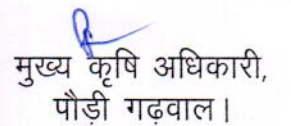 मुख्य कृषि अधिकारी,
पौड़ी गढ़वाल।